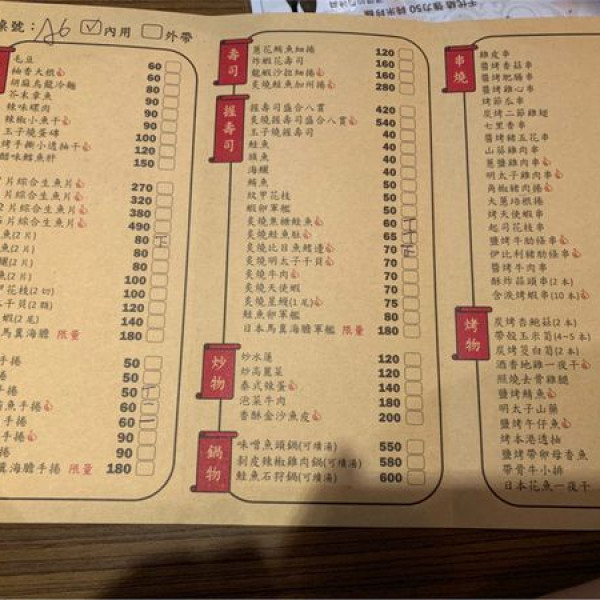 桌號：A6 ✓內用 外帶
毛豆 60
柚香大根 60
胡麻烏龍冷麵 80
芥末章魚 90
辣味螺肉 90
辣椒小魚干 90
玉子燒蛋磚 100
烤手撕小透抽干 120
醋味鱈魚肝 150
片綜合生魚片 270
片綜合生魚片 320
片綜合生魚片 380
片綜合生魚片 490
魚(2片) 80
魚(2片) 80
(2片) 80
魚(2片) 100
甲花枝(2切) 100
干貝(2顆) 120
蝦(2尾) 140
馬糞海膽 限量 180
手捲 50
手捲 50
手捲 50
魚手捲 60
手捲 60
手捲 90
手捲 90
海膽手捲 限量 180
壽司
蔥花鮪魚細捲 120
炸蝦花壽司 160
龍蝦沙拉細捲 160
炙燒鮭魚加州捲 280
握壽司
握壽司盛合八貫 420
炙燒握壽司盛合八貫 540
玉子燒握壽司 40
鮭魚 40
旗魚 40
海鱺 40
鮪魚 50
紋甲花枝 50
蝦卵軍艦 50
炙燒焦糖鮭魚 60
炙燒鮭魚肚 65
炙燒比目魚鰭邊 70
炙燒明太子干貝 70
炙燒牛肉 70
炙燒天使蝦 70
炙燒星鰻(1尾) 75
鮭魚卵軍艦 80
日本馬糞海膽軍艦 限量 180
炒物
炒水蓮 120
炒高麗菜 120
泰式辣蛋 140
泡菜牛肉 180
香酥金沙魚皮 200
鍋物
味噌魚頭鍋(可續湯) 550
剝皮辣椒雞肉鍋(可續湯) 580
鮭魚石狩鍋(可續湯) 600
串燒
雞皮串
醬烤香菇串
醬烤肥腸串
醬烤雞心串
烤節瓜串
炭烤二節雞翅
七里香串
醬烤豬五花串
山葵雞肉串
蔥鹽雞肉串
明太子雞肉串
角椒豬肉捲
大蔥培根捲
烤天使蝦串
起司花枝串
鹽烤牛肋條串
伊比利豬肋條串
醬烤牛肉串
酥炸蒜頭串(2本)
含淚烤蝦串(10本)
烤物
炭烤杏鮑菇(2本)
帶殼玉米筍(4~5本)
炭烤茭白筍(2本)
酒香地雞一夜干
照燒去骨雞腿
鹽烤鯖魚
明太子山藥
鹽烤午仔魚
烤本港透抽
鹽烤帶卵母香魚
帶骨牛小排
日本花魚一夜干